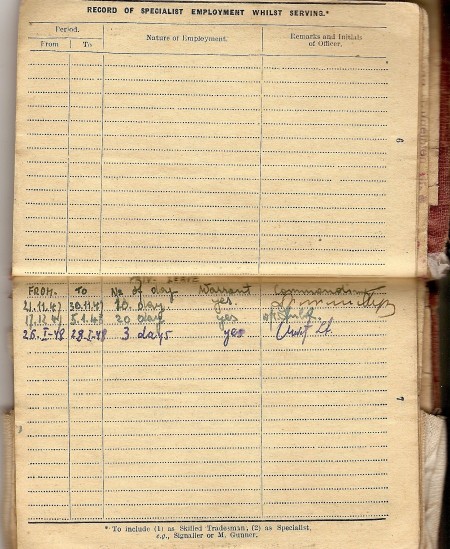 RECORD OF SPECIALIST EMPLOYMENT WHILST SERVING.*
Period. Nature of Employment. Remarks and Initials
From To of Officer.
6
LEAVE
FROM. TO No of day Warrant
21.11.47 30.11.47 10 day. yes.
17.12.47 5.1.48 20 day yes
26.I-48 28.I-48 3 days yes
7
* To include (1) as Skilled Tradesman, (2) as Specialist,
e.g., Signaller or M. Gunner.